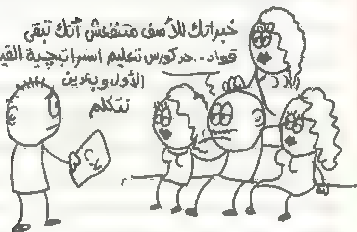 خبراتك للأسف متنفعش أنك تبقى
قواد .. خد كورس تعليم استراتيجية القيا
الأول وبعدين
نتكلم